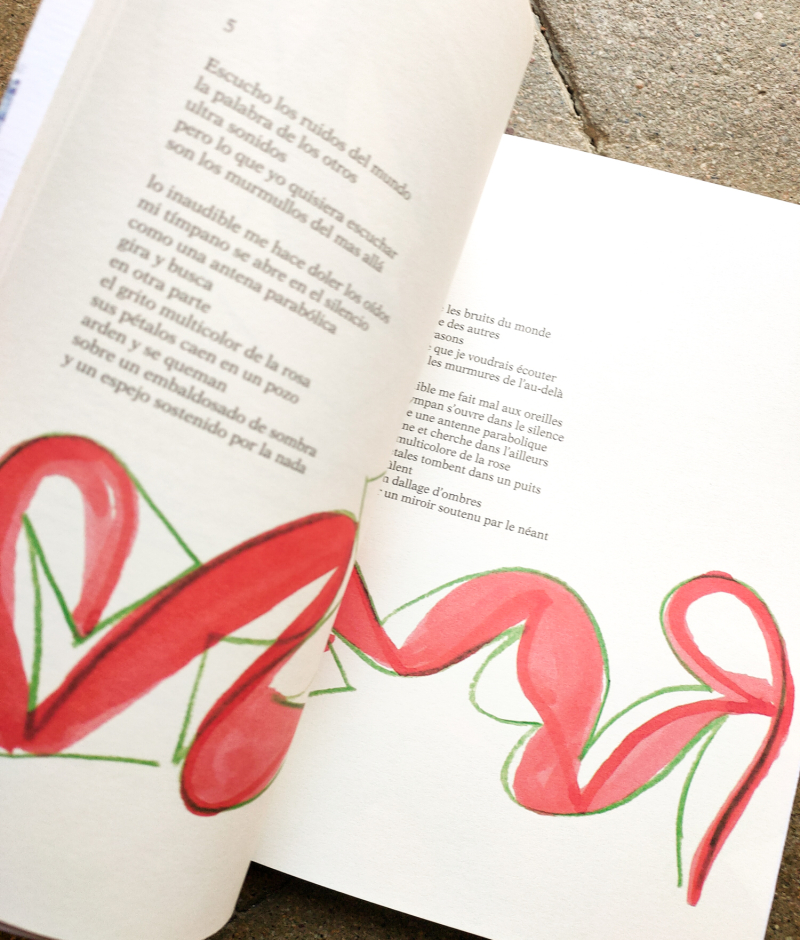 5
Escucho los ruidos del mundo
la palabra de los otros
ultra sonidos
pero lo que yo quisiera escuchar
son los murmullos del mas allá
lo inaudible me hace doler los oídos
mi tímpano se abre en el silencio
como una antena parabólica
gira y busca
en otra parte
el grito multicolor de la rosa
sus pétalos caen en un pozo
arden y se queman
sobre un embaldosado de sombra
y un espejo sostenido por la nada
les bruits du monde
e des autres
asons
que je voudrais écouter
les murmures de l'au-delà
ible me fait mal aux oreilles
ympan s'ouvre dans le silence
e une antenne parabolique
ne et cherche dans l'ailleurs
multicolore de la rose
tales tombent dans un puits
ûlent
n dallage d'ombres
un miroir soutenu par le néant